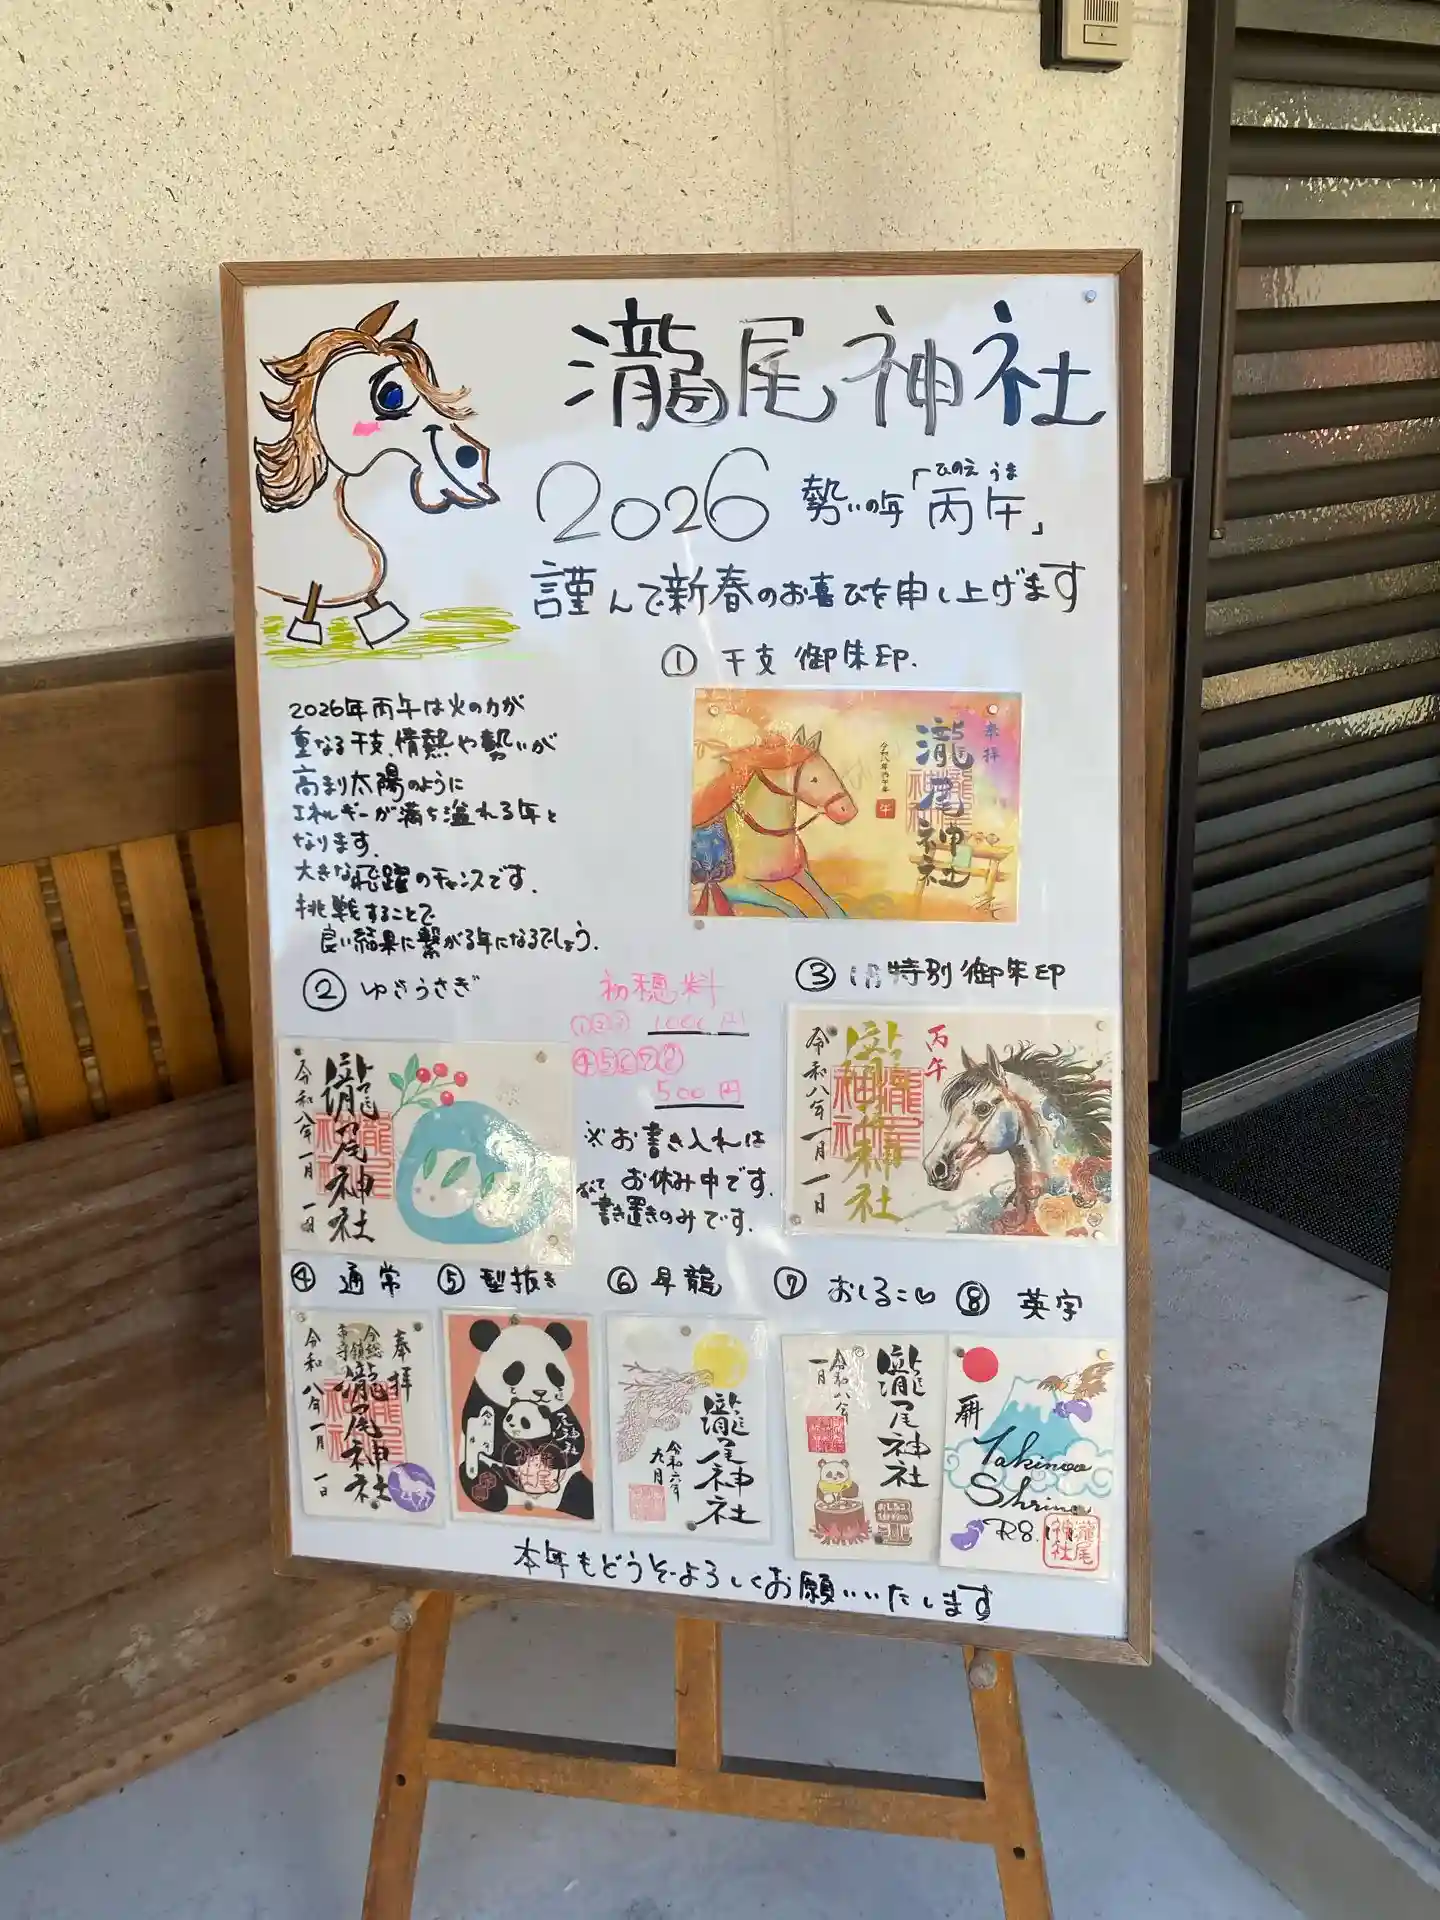 瀧尾神社
2026 勢いの年「丙午」
ひのえ うま
謹んで新春のお喜びを申し上げます
① 干支 御朱印.
2026年丙午は火の力が
重なる干支、情熱や勢いが
高まり太陽のように
エネルギーが満ち溢れる年と
なります.
大きな飛躍のチャンスです.
挑戦することで
良い結果に繋がる年になるでしょう.
奉拝
瀧尾神社
令和八年丙午年
午
② ゆきうさぎ
初穂料
①②③ 1000円
④⑤⑥⑦⑧
500円
※お書き入れは
お休み中です.
すべて
書き置きのみです.
③ 1月特別御朱印
瀧尾神社
令和八年一月一日
丙午
瀧尾神社
令和八年一月一日
④ 通常
⑤ 型抜き
⑥ 昇龍
⑦ おしるこ♡
⑧ 英字
奉拝
瀧尾神社
令和八年一月一日
瀧尾神社
令和六年
九月
瀧尾神社
令和八年
一月
Takinoo
Shrine
R8.1
瀧尾神社
本年もどうぞよろしくお願いいたします